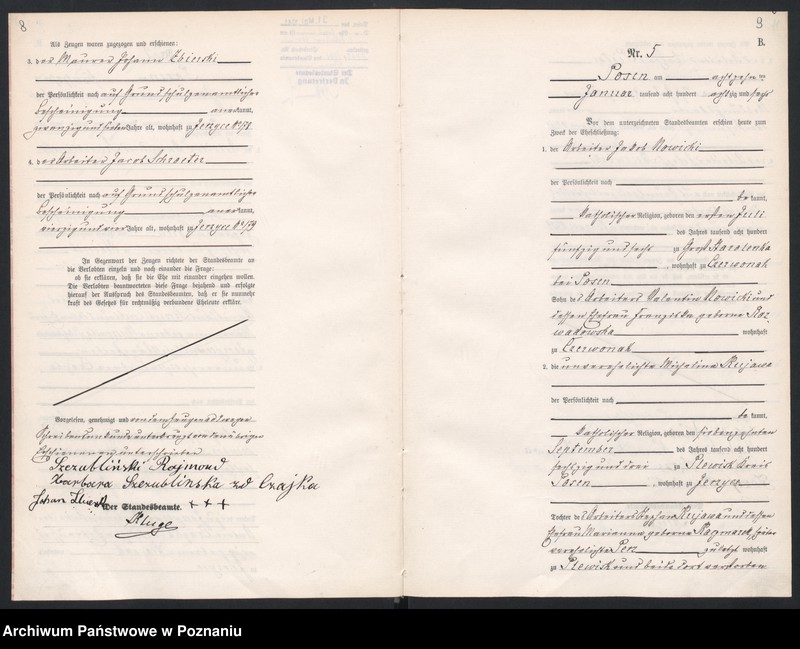 8
Als Zeugen waren zugezogen und erschienen:
3. des Maurer Johann
der Persönlichkeit nach auf Grund schulzenamtlicher
Bescheinigung anerkannt,
Jahre alt, wohnhaft zu Jerzyce
4. der Arbeiter Jacob Schroeter
der Persönlichkeit nach auf Grund schulzenamtlicher
Bescheinigung anerkannt,
vierzig und vier Jahre alt, wohnhaft zu Jerzyce
In Gegenwart der Zeugen richtete der Standesbeamte an
die Verlobten einzeln und nach einander die Frage:
ob sie erklären, daß sie die Ehe mit einander eingehen wollen.
Die Verlobten beantworteten diese Frage bejahend und erfolgte
hierauf der Ausspruch des Standesbeamten, daß er sie nunmehr
kraft des Gesetzes für rechtmäßig verbundene Eheleute erkläre.
Vorgelesen, genehmigt und
Schreibensunkunde unterkreuzt von den übrigen
Erschienenen unterschrieben
Szczubliński Rajmund
Barbara Szczublinska zd Czajka
Johan
Der Standesbeamte. + + +
Kluge
9
B.
Nr. 5
Posen am achtzehn ten
Januar tausend acht hundert achtzig und sechs
Vor dem unterzeichneten Standesbeamten erschien heute zum
Zweck der Eheschließung:
1. der Arbeiter Jakob Nowicki
der Persönlichkeit nach
be kannt,
katholischer Religion, geboren den ersten Juli
des Jahres tausend acht hundert
fünfzig und sechs zu Gorst Starolenka
, wohnhaft zu Czerwonak
bei Posen
Sohn des Arbeiters Valentin Nowicki und
dessen Ehefrau Franziska geborne Roz-
wadowska wohnhaft
zu Czerwonak
2. die unverehelichte Michalina Kujawa
der Persönlichkeit nach
be kannt,
katholischer Religion, geboren den siebenzehnten
September des Jahres tausend acht hundert
sechzig und drei zu Plewisk Kreis
Posen , wohnhaft zu Jerzyce
Tochter des Arbeiters Stephan Kujawa und dessen
Ehefrau Marianna geborne später
verehelichte zuletzt wohnhaft
zu Plewisk und beide dort verstorben
Archiwum Państwowe w Poznaniu